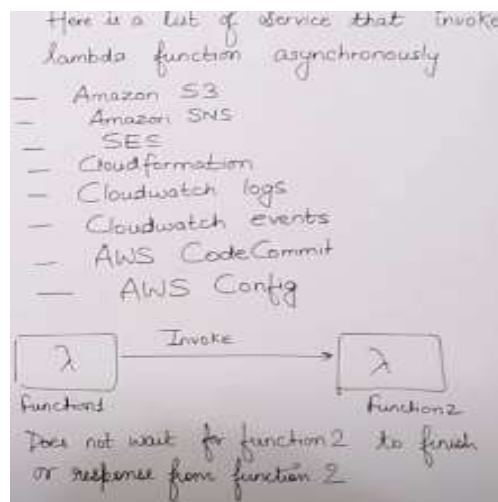 Here is a list of service that invoke
lambda function asynchronously
— Amazon S3
— Amazon SNS
— SES
— Cloudformation
— Cloudwatch logs
— Cloudwatch events
— AWS CodeCommit
— AWS Config
Invoke
λ λ
function1 function2
Does not wait for function2 to finish
or response from function 2